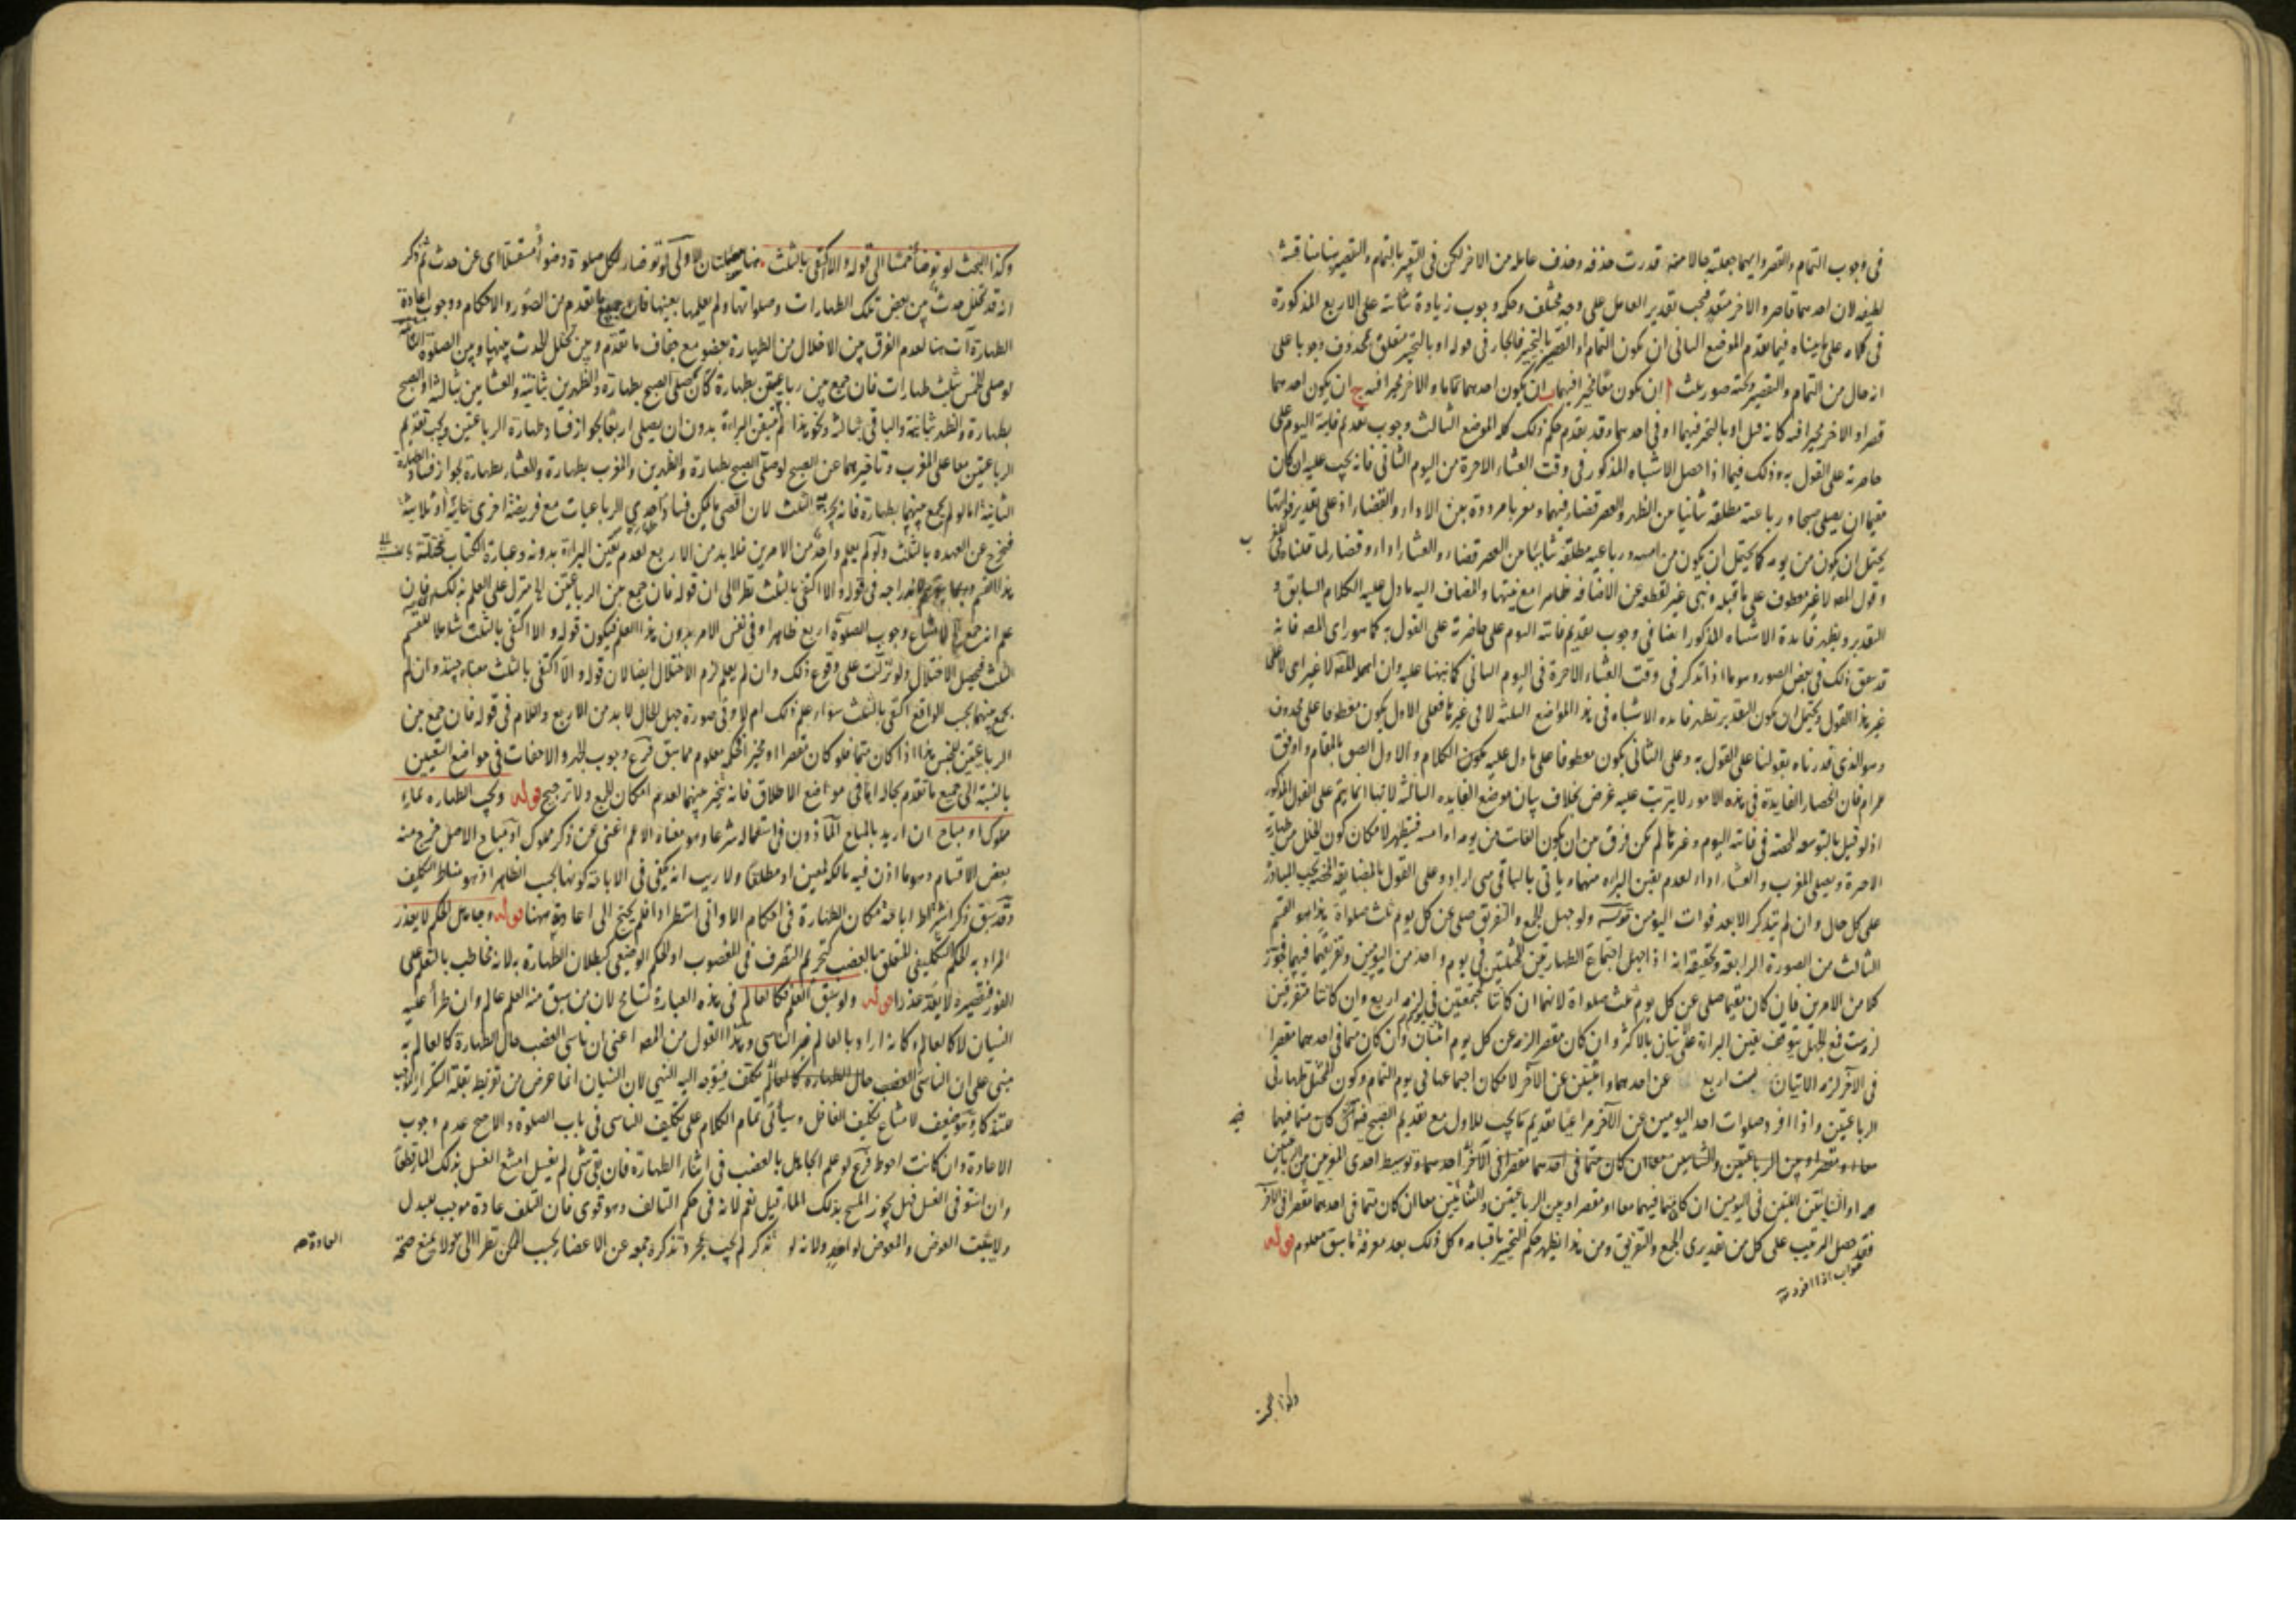 في وجوب التمام والقصر وايهما جعلته حالا منه قدرت حذفه وحذف عامله من الاخر لكن في التعبير بالتمام والتقصير هنا مناقشة
لطيفة لان احدهما قاصر والاخر متعد فيجب تقدير العامل على وجه مختلف وحكم وجوب زيادة ثنائية على الاربع المذكورة
في كلامه على ما بيناه فيما تقدم الموضع الثاني ان يكون التمام او التقصير بالتخيير فالجار في قوله او بالتخيير متعلق بمحذوف وجوبا على
انه حال من التمام والتقصير وتحته صور ثلث ا ان يكون مخيرا فيهما ب ان يكون احدهما تماما والاخر مخيرا فيه ج ان يكون احدهما
قصرا والاخر مخيرا فيه كانه قيل او بالتخيير فيهما او في احدهما وقد تقدم حكم ذلك كله الموضع الثالث وجوب تقديم فايتة اليوم على
حاضرته على القول به وذلك فيما اذا حصل الاشتباه المذكور في وقت العشاء الاخرة من اليوم الثاني فانه يجب عليه ان كان
مقيما ان يصلي صبحا ورباعية مطلقة ثنائيا من الظهر والعصر قضاء فيهما ومغربا مرددة بين الاداء والقضاء اذ على تقدير فواتها
يحتمل ان يكون من يومه كما يحتمل ان يكون من امسه ورباعية مطلقة ثنائيا من العصر قضاء والعشاء اداء وقضاء لما قلناه في
وقول المص لا غير معطوف على ما قبله وبني غير لقطعه عن الاضافة ظاهرا مع نيتها والمضاف اليه ما دل عليه الكلام السابق و
التقدير ويظهر فايدة الاشتباه المذكور ايضا في وجوب تقديم فائتة اليوم على حاضرته على القول به كما هو راي المص فانه
قد سبق ذلك في بعض الصور وهو ما اذا تذكر في وقت العشاء الاخرة في اليوم الثاني كما نبهنا عليه وان اهمله المص لا غير اي لا على
غير هذا القول ويحتمل ان يكون التقدير تظهر فايدة الاشتباه في هذه المواضع الثلثة لا في غيرها فعلى الاول يكون معطوفا على محذوف
وهو الذي قدرناه بقولنا على القول به وعلى الثاني يكون معطوفا على ما دل عليه الكلام والاول الصق بالمقام واوفق
مرام فان انحصار الفايدة في هذه الامور لا يترتب عليه غرض بخلاف بيان موضع الفايدة الثالثة لانها انما يتم على القول المذكور
اذ لو قيل بالتوسعة المحضة في فائتة اليوم وغيرها لم يكن فرق بين ان يكون الفائت من يومه او امسه فيتطهر لامكان كون الخلل من طهارته
الاخيرة ويصلي المغرب والعشاء اداء لعدم يقين البراءة منهما وياتي بالباقي متى اراد وعلى القول بالمضايقة المحضة يجب المبادرة
على كل حال وان لم يتذكر الا بعد فوات اليومين ولو جهل الجمع والتفريق صلى عن كل يوم ثلث صلوات هذا هو القسم
الثالث من الصورة الرابعة وتحقيقه انه اذا جهل اجتماع الطهارتين المختلتين في يوم واحد من اليومين وتفريقهما فيهما فجوز
كلا من الامرين فان كان مقيما صلى عن كل يوم ثلث صلوات لانهما ان كانتا مجتمعتين في يوم لزمه اربع وان كانتا متفرقتين
لزمه ست فمع الجهل يتوقف يقين البراءة على الاتيان بالاكثر وان كان مقصرا لزمه عن كل يوم اثنتان وان كان متما في احدهما مقصرا
في الاخر لزمه الاتيان بست اربع عن احدهما واثنتين عن الاخر لامكان اجتماعهما في يوم التمام وكون المختل طهارتي
الرباعيتين واذا افرد صلوات احد اليومين عن الاخر مراعيا تقديم ما يجب للاول مع تقديم الصبح فيه كان متما فيهما
معا او مقصرا وبين الرباعيتين والثنائيتين معا ان كان متما في احدهما مقصرا في الاخر احدهما وتوسط احدى المغربين بين الرباعيتين
او الثنائيتين في اليومين ان كان متما فيهما معا او مقصرا وبين الرباعيتين والثنائيتين معا ان كان متما في احدهما مقصرا في الاخر
فقد حصل الترتيب على كل من تقديري الجمع والتفريق ومن هذا يظهر حكم التخيير باقسامه وكل ذلك بعد معرفة ما سبق معلوم قوله
صواب اذا افرد
وكذا البحث
وكذا البحث لو توضأ خمسا الى قوله والا اكتفى بالثلث هنا مسئلتان الاولى لو توضأ لكل صلوة وضوء مستقلا اي عن حدث ثم ذكر
انه قد تخلل حدث بين بعض تلك الطهارات وصلواتها ولم يعلمها بعينها فان جميع ما تقدم من الصور والاحكام ووجوب اعادة
الطهارة آت هنا لعدم الفرق بين الاخلال من الطهارة بعضو مع جفاف ما تقدم وبين تخلل الحدث بينها وبين الصلوة الثانية
لو صلى الخمس بثلث طهارات فان جمع بين رباعيتين بطهارة كأن صلى الصبح بطهارة والظهرين بثانية والعشاين بثالثة او الصبح
بطهارة والظهر بثانية والباقي بثالثة ونحو هذا لم يتيقن البراءة بدون ان يصلي اربعا لجواز فساد طهارة الرباعيتين ويجب تقديم
الرباعيتين معا على المغرب وتاخيرهما عن الصبح لو صلى الصبح بطهارة والظهرين والمغرب بطهارة والعشاء بطهارة لجواز فساد الطهارة
الثانية اما لو لم يجمع بينهما بطهارة فانه يجزيه الثلث لان اقصى ما يمكن فساد احدى الرباعيات مع فريضة اخرى ثنائية او ثلاثية
فيخرج عن العهدة بالثلث ولو لم يعلم واحدا من الامرين فلا بد من الاربع لعدم تيقن البراءة بدونه وعبارة الكتاب مختلة
هذا القسم وربما يتوهم اندراجه في قوله والا اكتفى بالثلث نظرا الى ان قوله فان جمع بين الرباعيتين منزل على العلم بذلك فان
علم انه جمع لامتناع وجوب الصلوة اربع ظاهرا وفي نفس الامر بدون هذا العلم فيكون قوله والا اكتفى بالثلث شاملا للقسم
الثالث فيحصل الاختلال ولو نزلت على وقوع ذلك وان لم يعلم لزم الاختلال ايضا لان قوله والا اكتفى بالثلث معناه حينئذ وان لم
يجمع بينهما بحسب الواقع اكتفى بالثلث سواء علم ذلك ام لا وفي صورة جهل الحال لا بد من الاربع واللام في قوله فان جمع بين
الرباعيتين للجنس هذا اذا كان متما فلو كان مقصرا او مخيرا فحكمه معلوم مما سبق فرع وجوب الجهر والاخفات في مواضع التعيين
بالنسبة الى جميع ما تقدم بحاله اما في مواضع الاطلاق فانه يتخير بينهما لعدم امكان الجمع ولا ترجيح قوله ويجب الطهارة بماء
مملوك او مباح ان اريد بالمباح المأذون في استعماله شرعا وهو معناه الاعم اغنى عن ذكر مملوك او مباح الاصل خرج منه
بعض الاقسام وهو ما اذن فيه مالكه لمعين او مطلقا ولا ريب انه يكفي في الاباحة كونها بحسب الظاهر اذ هو مناط التكليف
وقد سبق ذكر اشتراط اباحة مكان الطهارة في احكام الاواني استطرادا فلم يحتج الى اعادته هنا قوله وجاهل الحكم لا يعذر
المراد به الحكم التكليفي المتعلق بالغصب كتحريم التصرف في المغصوب او الحكم الوضعي كبطلان الطهارة به لانه مخاطب بالتعلم على
الفور فتقصيره لا يعد عذرا قوله ولو سبق العلم فكالعالم في هذه العبارة تسامح لان من سبق منه العلم عالم وان طرأ عليه
النسيان لا كالعالم وكانه اراد بالعالم غير الناسي وهذا القول من المص اعني ان ناسي الغصب حال الطهارة كالعالم به
مبني على ان الناسي للغصب مكلف فيتوجه اليه النهي لان النسيان انما عرض من تفريطه بقلة التكرار الموجب
للتذكار وهو ضعيف لامتناع تكليف الغافل وسيأتي تمام الكلام على تكليف الناسي في باب الصلوة والاصح عدم وجوب
الاعادة وان كانت احوط فرع لو علم الجاهل بالغصب في اثناء الطهارة فان بقي شئ لم يغسل امتنع الغسل بذلك الماء قطعا
وان استوفى الغسل فهل يجوز المسح بذلك الماء قيل نعم لانه في حكم التالف وهو قوي فان التلف عادة موجب للبدل
ولا يثبت العوض والمعوض لواحد ولانه لو تذكر لم يجب بمجرد تذكره جمعه عن الاعضاء بحسب الممكن نظرا الى يمنع صحة